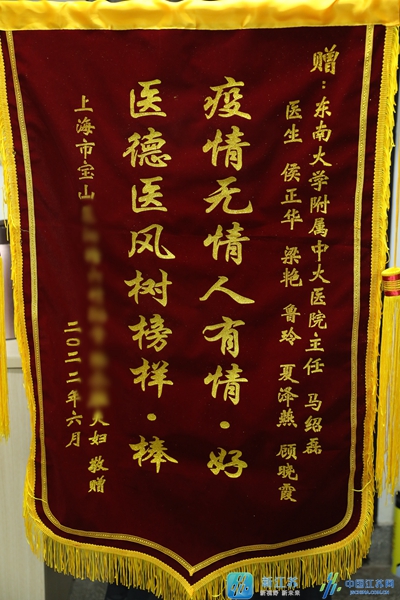 赠：东南大学附属中大医院主任 马绍磊
医生 侯正华 梁艳 鲁玲 夏泽燕 顾晓霞
疫情无情人有情·好
医德医风树榜样·棒
上海市宝山
夫妇 敬赠
二〇二二年六月
新江苏
新视野 新未来
中国江苏网
JSCHINA.COM.CN